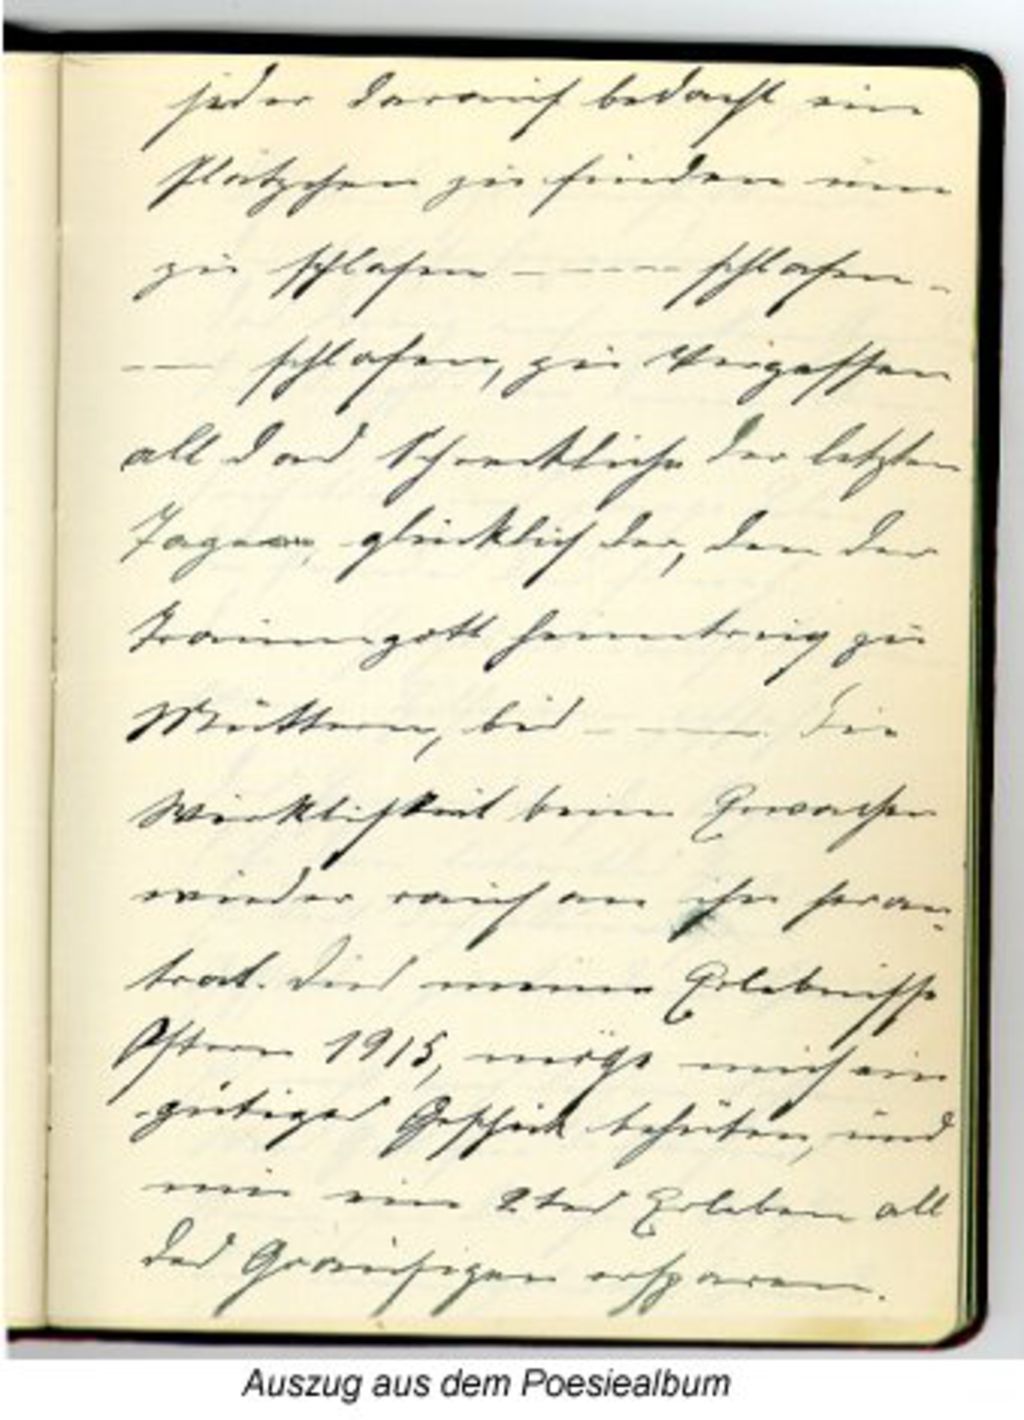 jeder darauf bedacht ein
Plätzchen zu finden um
zu schlafen – – – – schlafen –
– – schlafen, zu vergessen
all das Schreckliche der letzten
Tage, glücklich der, den der
Traumgott heimtrug zu
Muttern, bis – – – – die
Wirklichkeit beim Erwachen
wieder rauh an ihn heran-
trat. Dies meine Erlebnisse
Ostern 1915, möge mich ein
gütiges Geschick behüten, und
mir ein 2tes Erleben all
des Grausigen ersparen.
Auszug aus dem Poesiealbum